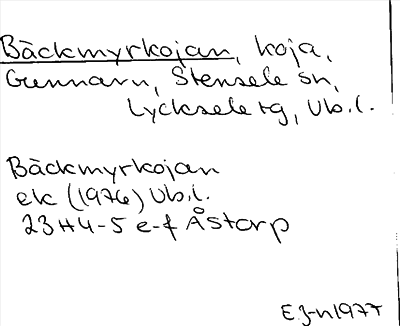 Bäckmyrkojan, koja,
Gunnarn, Stensele sn,
Lycksele tg, Vb.l.
Bäckmyrkojan
ek (1976) Vb.l.
23H4-5 e-f Åstorp
E J-n 1977